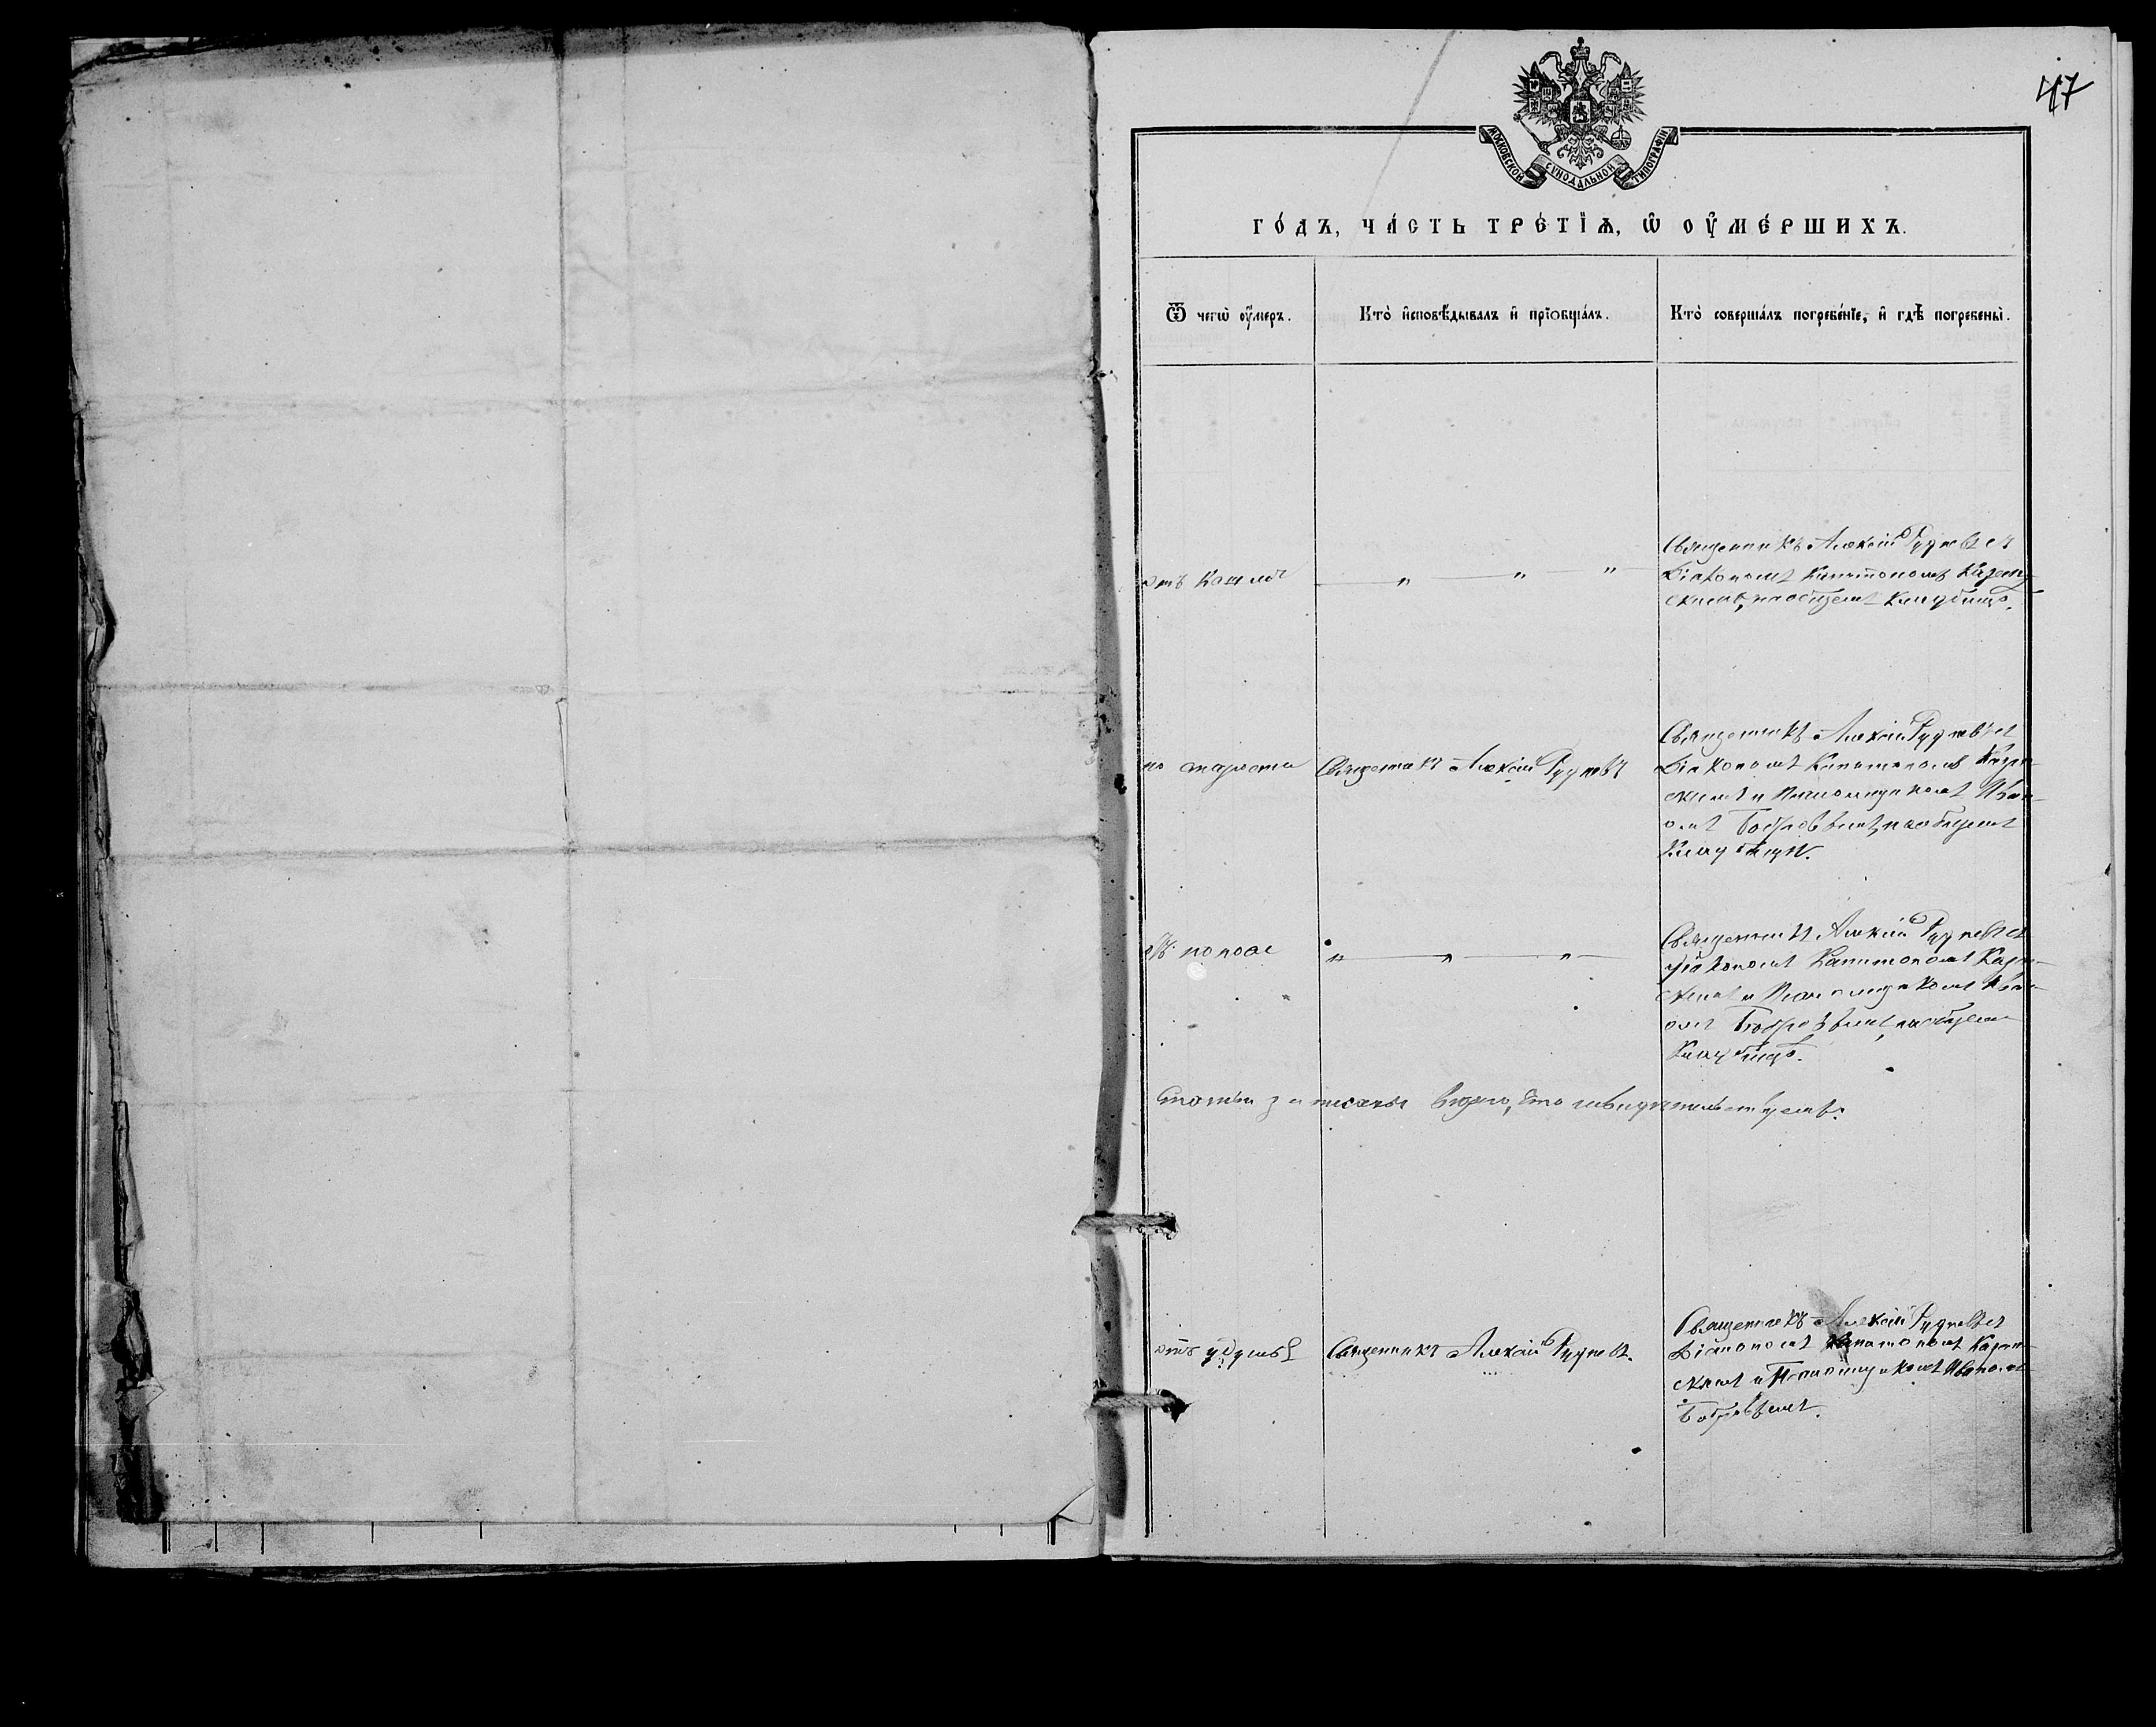 47
МОСКОВСКОЙ СѴНОДАЛЬНОЙ ТИПОГРАФІИ
ГО́ДЪ, ЧА́СТЬ ТРЕ́ТЇѦ, Ѡ҆ ОУ҆МЕ́РШИХЪ.
Ѿ чегѡ̀ оу҆́меръ.
Кто̀ и҆сповѣ́дывалъ и҆ прїобща́лъ.
Кто̀ соверша́лъ погребе́нїе, и҆ гдѣ̀ погребены̀.
отъ кашля
„ „ „
Священникъ Алексій Рудневъ съ
Діакономъ Капитономъ Казан-
скимъ, на общемъ кладбищѣ.
старости
Священникъ Алексій Рудневъ
Священникъ Алексій Рудневъ съ
Діакономъ Капитономъ Казан-
скимъ и Псаломщикомъ Иван-
омъ Бобровымъ, на общемъ
кладбищѣ.
поноса
„ „ „
Священникъ Алексій Рудневъ съ
Діакономъ Капитономъ Казан-
скимъ и Псаломщикомъ Иван-
омъ Бобровымъ, на общемъ
кладбищѣ.
записаны вѣрно, въ томъ свидѣтельствуемъ:
отъ удушья
Священникъ Алексій Рудневъ.
Священникъ Алексій Рудневъ съ
Діакономъ Капитономъ Казан-
скимъ и Псаломщикомъ Иваномъ
Бобровымъ.